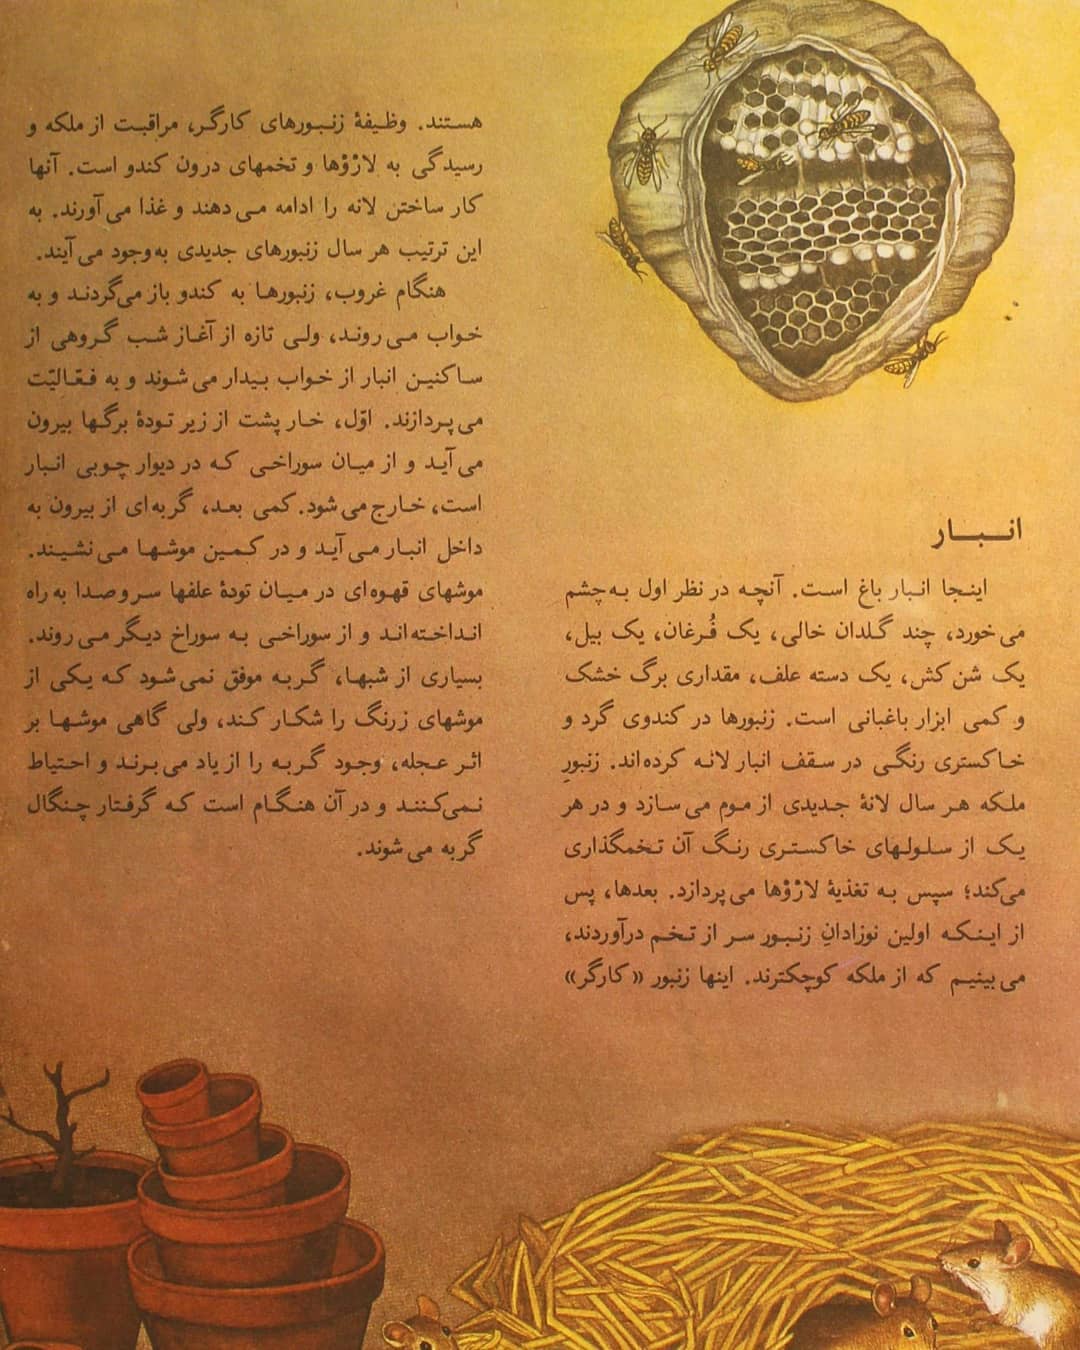 انبار
اینجا انبار باغ است. آنچه در نظر اول به چشم
می‌خورد، چند گلدان خالی، یک فُرغان، یک بیل،
یک شن کش، یک دسته علف، مقداری برگ خشک
و کمی ابزار باغبانی است. زنبورها در کندوی گرد و
خاکستری رنگی در سقف انبار لانه کرده‌اند. زنبورِ
ملکه هر سال لانهٔ جدیدی از موم می‌سازد و در هر
یک از سلولهای خاکستری رنگ آن تخمگذاری
می‌کند؛ سپس به تغذیهٔ لارْوْها می‌پردازد. بعدها، پس
از اینکه اولین نوزادانِ زنبور سر از تخم درآوردند،
می‌بینیم که از ملکه کوچکترند. اینها زنبور «کارگر»
هستند. وظیفهٔ زنبورهای کارگر، مراقبت از ملکه و
رسیدگی به لارْوْها و تخمهای درون کندو است. آنها
کار ساختن لانه را ادامه می‌دهند و غذا می‌آورند. به
این ترتیب هر سال زنبورهای جدیدی به‌وجود می‌آیند.
هنگام غروب، زنبورها به کندو باز می‌گردند و به
خواب می‌روند، ولی تازه از آغاز شب گروهی از
ساکنین انبار از خواب بیدار می‌شوند و به فعّالیّت
می‌پردازند. اوّل، خارپشت از زیر تودهٔ برگها بیرون
می‌آید و از میان سوراخی که در دیوار چوبی انبار
است، خارج می‌شود. کمی بعد، گربه‌ای از بیرون به
داخل انبار می‌آید و در کمین موشها می‌نشیند.
موشهای قهوه‌ای در میان تودهٔ علفها سروصدا به راه
انداخته‌اند و از سوراخی به سوراخ دیگر می‌روند.
بسیاری از شبها، گربه موفق نمی‌شود که یکی از
موشهای زرنگ را شکار کند، ولی گاهی موشها بر
اثر عجله، وجود گربه را از یاد می‌برند و احتیاط
نمی‌کنند و در آن هنگام است که گرفتار چنگال
گربه می‌شوند.